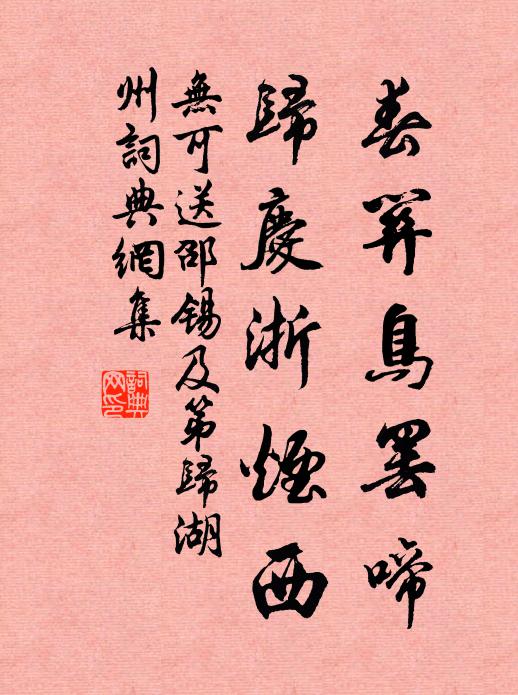 春關鳥罷啼
歸慶浙煙西
無可送邵錫及第歸湖
州詞典網集
詞典
网印